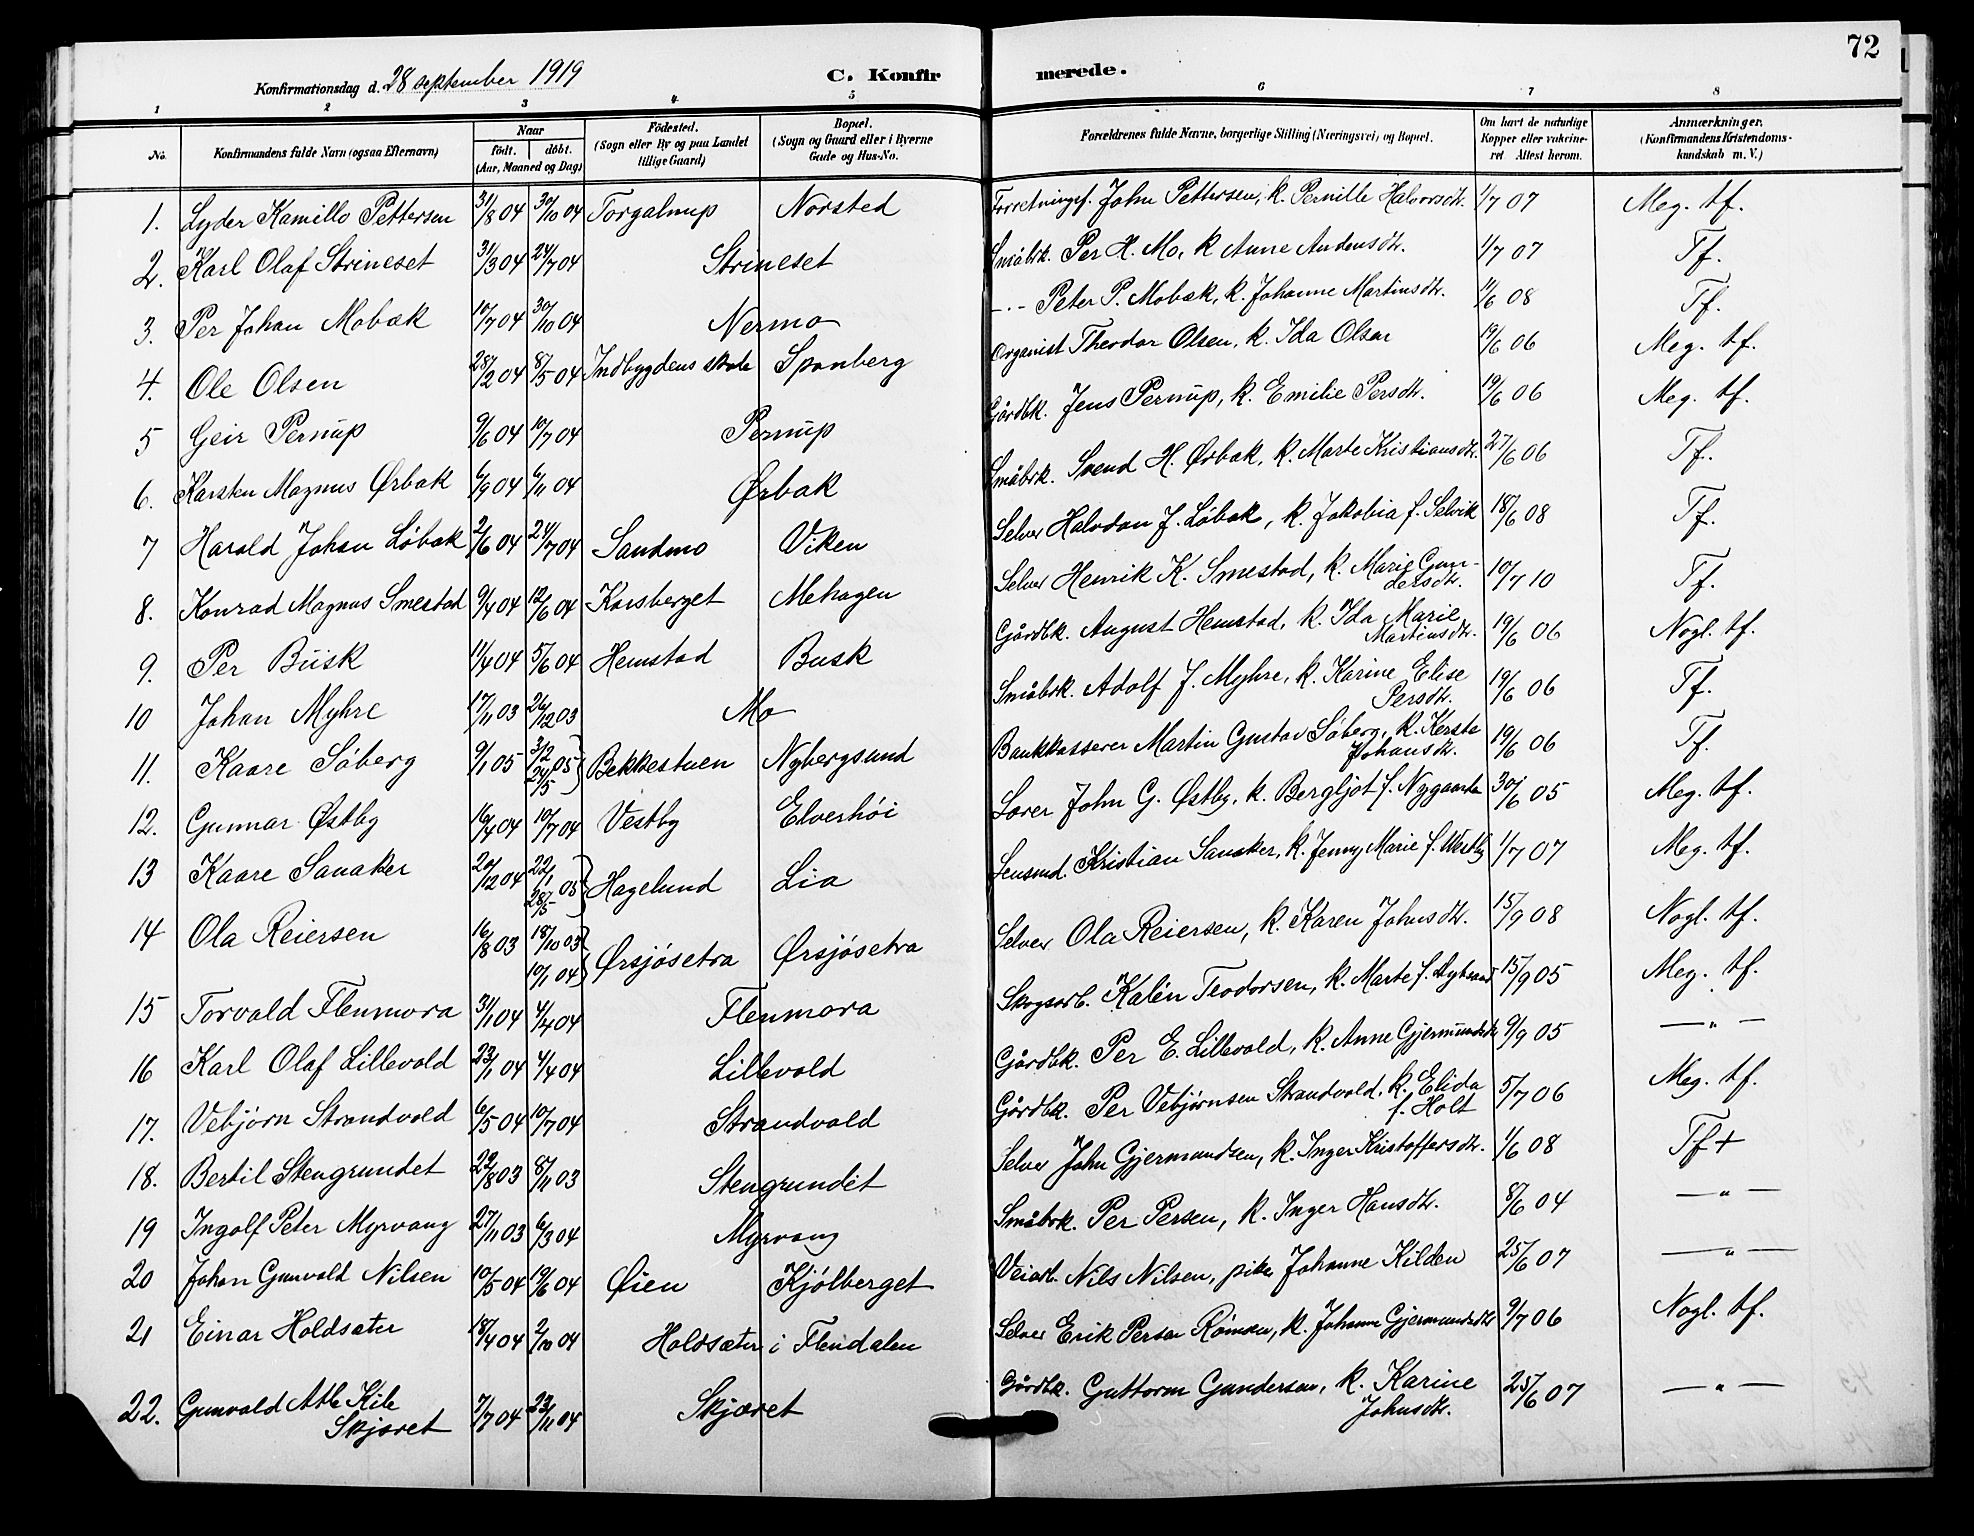 72
Konfirmationsdag d. 28 september 1919
C. Konfirmerede.
1 2 3 4 5 6 7 8
No. Konfirmandens fulde Navn (ogsaa Efternavn) Naar født. døbt. (Aar, Maaned og Dag) Fødested. (Sogn eller By og paa Landet tillige Gaard) Bopæl. (Sogn og Gaard eller i Byerne Gade og Hus-No. Forældrenes fulde Navne, borgerlige Stilling (Næringsvei) og Bopæl. Om havt de naturlige Kopper eller vakcineret Attest herom. Anmærkninger. (Konfirmandens Kristendomskundskab m. V.)
1. Lyder Kamillo Pettersen 31/8 04 30/10 04 Torgalmup Norsted Forretningsf. John Pettersen, k. Pernille Halvorsdtr. 1/7 07 Meg. tf.
2. Karl Olaf Strineset 31/3 04 24/7 04 Strineset Småbrk. Per H. Mo, k Anne Andersdtr. 1/7 07 Tf.
3. Per Johan Mobæk 10/7 04 30/10 04 Nermo -"- Peter P. Mobæk, k. Johanne Martinsdtr. 11/6 08 Tf.
4. Ole Olsen 28/2 04 8/5 04 Indbygdens skole Spanberg Organist Theodor Olsen, k. Ida Olsen 19/6 06 Meg. tf.
5 Geir Pernup 9/6 04 10/7 04 Pernup Gårdbk. Jens Pernup, k. Emilie Persdtr. 19/6 06 Meg. tf.
6. Karsten Magnus Ørbæk 6/9 04 6/11 04 Ørbæk Småbrk. Svend H. Ørbæk, k. Marte Kristiansdtr. 27/6 06 Tf.
7 Harald Johan Løbæk 2/6 04 24/7 04 Sandmo Viken Selver Halvdan J. Løbæk, k. Jakobia f. Selvik 18/6 08 Tf.
8. Konrad Magnus Smestad 9/4 04 12/6 04 Karsberget Mehagen Selver Henrik K. Smestad, k. Marie Gundersdtr. 10/7 10 Tf.
9. Per Busk 11/4 04 5/6 04 Hemstad Busk Gårdbk. August Hemstad, k. Ida Marie Martinsdtr. 19/6 06 Nogl. tf.
10 Johan Myhre 17/11 03 26/12 03 Mo Småbrk. Adolf J. Myhre, k. Karine Elise Persdtr. 19/6 06 Tf.
11. Kaare Søberg 9/1 05 3/2 24/5 05 Bekkestuen Nybergsund Bankkasserer Martin Gustav Søberg, k. Kersta Johansdtr. 19/6 06 Tf.
12. Gunnar Østby 16/4 04 10/7 04 Vestby Elverhøi Lærer John G. Østby, k. Bergljot f. Nygaarde 30/6 05 Meg. tf.
13 Kaare Sanaker 20/12 04 22/1 28/5 05 Hagelund Lia Lensmd. Kristian Sanaker, k. Jenny Marie f. Westby 1/7 07 Meg. tf.
14 Ola Reiersen 16/8 03 18/10 03 10/1 04 Ørsjøsetra Ørsjøsetra Selver Ola Reiersen, k. Karen Johnsdtr. 15/9 08 Nogl. tf.
15 Torvald Flenmora 31/1 04 4/4 04 Flenmora Skogsarb. Kalén Teodorsen, k. Marte f. Nybrænd 15/9 05 Meg. tf.
16 Karl Olaf Lillevold 23/1 04 4/4 04 Lillevold Gårdbk. Per E. Lillevold, k. Anne Gjermundsdtr 9/9 05 -"-
17. Vebjørn Strandvold 6/5 04 10/7 04 Strandvold Gårdbk. Per Vebjørnsen Strandvold, k. Elida f. Holt 5/7 06 Meg. tf.
18. Bertil Stengrundet 22/8 03 8/11 03 Stengrundet Selver John Gjermundsen, k. Inger Kristoffersdtr. 1/6 08 Tf+
19 Ingolf Peter Myrvang 27/11 03 6/3 04 Myrvang Småbrk. Per Persen, k. Inger Hansdtr. 8/6 04 -"-
20 Johan Gunvald Nilsen 10/5 04 19/6 04 Øien Kjølberget Veiarb. Nils Nilsen, pike Johanne Kilden 25/6 07 -"-
21 Einar Holdsæter 18/4 04 2/10 04 Holdsæter i Flendalen Selver Erik Persen Rømoen, k. Johanne Gjermundsdtr 9/7 06 Nogl. tf.
22. Gunvald Atle Kile Skjæret 7/7 04 23/11 04 Skjæret Gårdbk. Guttorm Gundersen, k. Karine Johnsdtr. 25/6 07 -"-